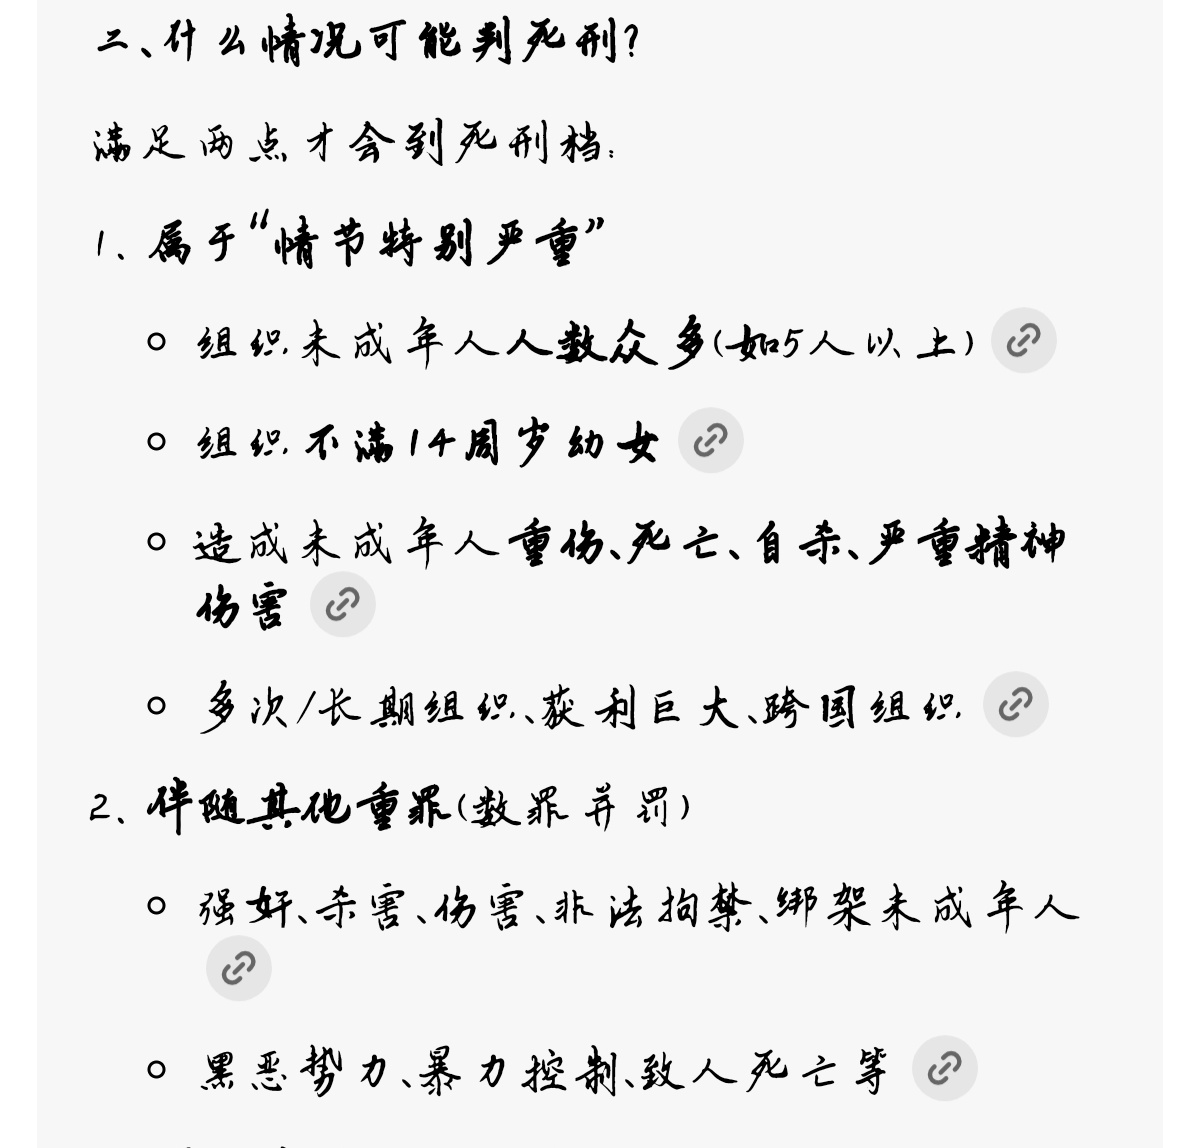 二、什么情况可能判死刑?
满足两点才会到死刑档:
1、属于“情节特别严重”
组织未成年人人数众多(如5人以上)
组织不满14周岁幼女
造成未成年人重伤、死亡、自杀、严重精神
伤害
多次/长期组织、获利巨大、跨国组织
2、伴随其他重罪(数罪并罚)
强奸、杀害、伤害、非法拘禁、绑架未成年人
黑恶势力、暴力控制、致人死亡等